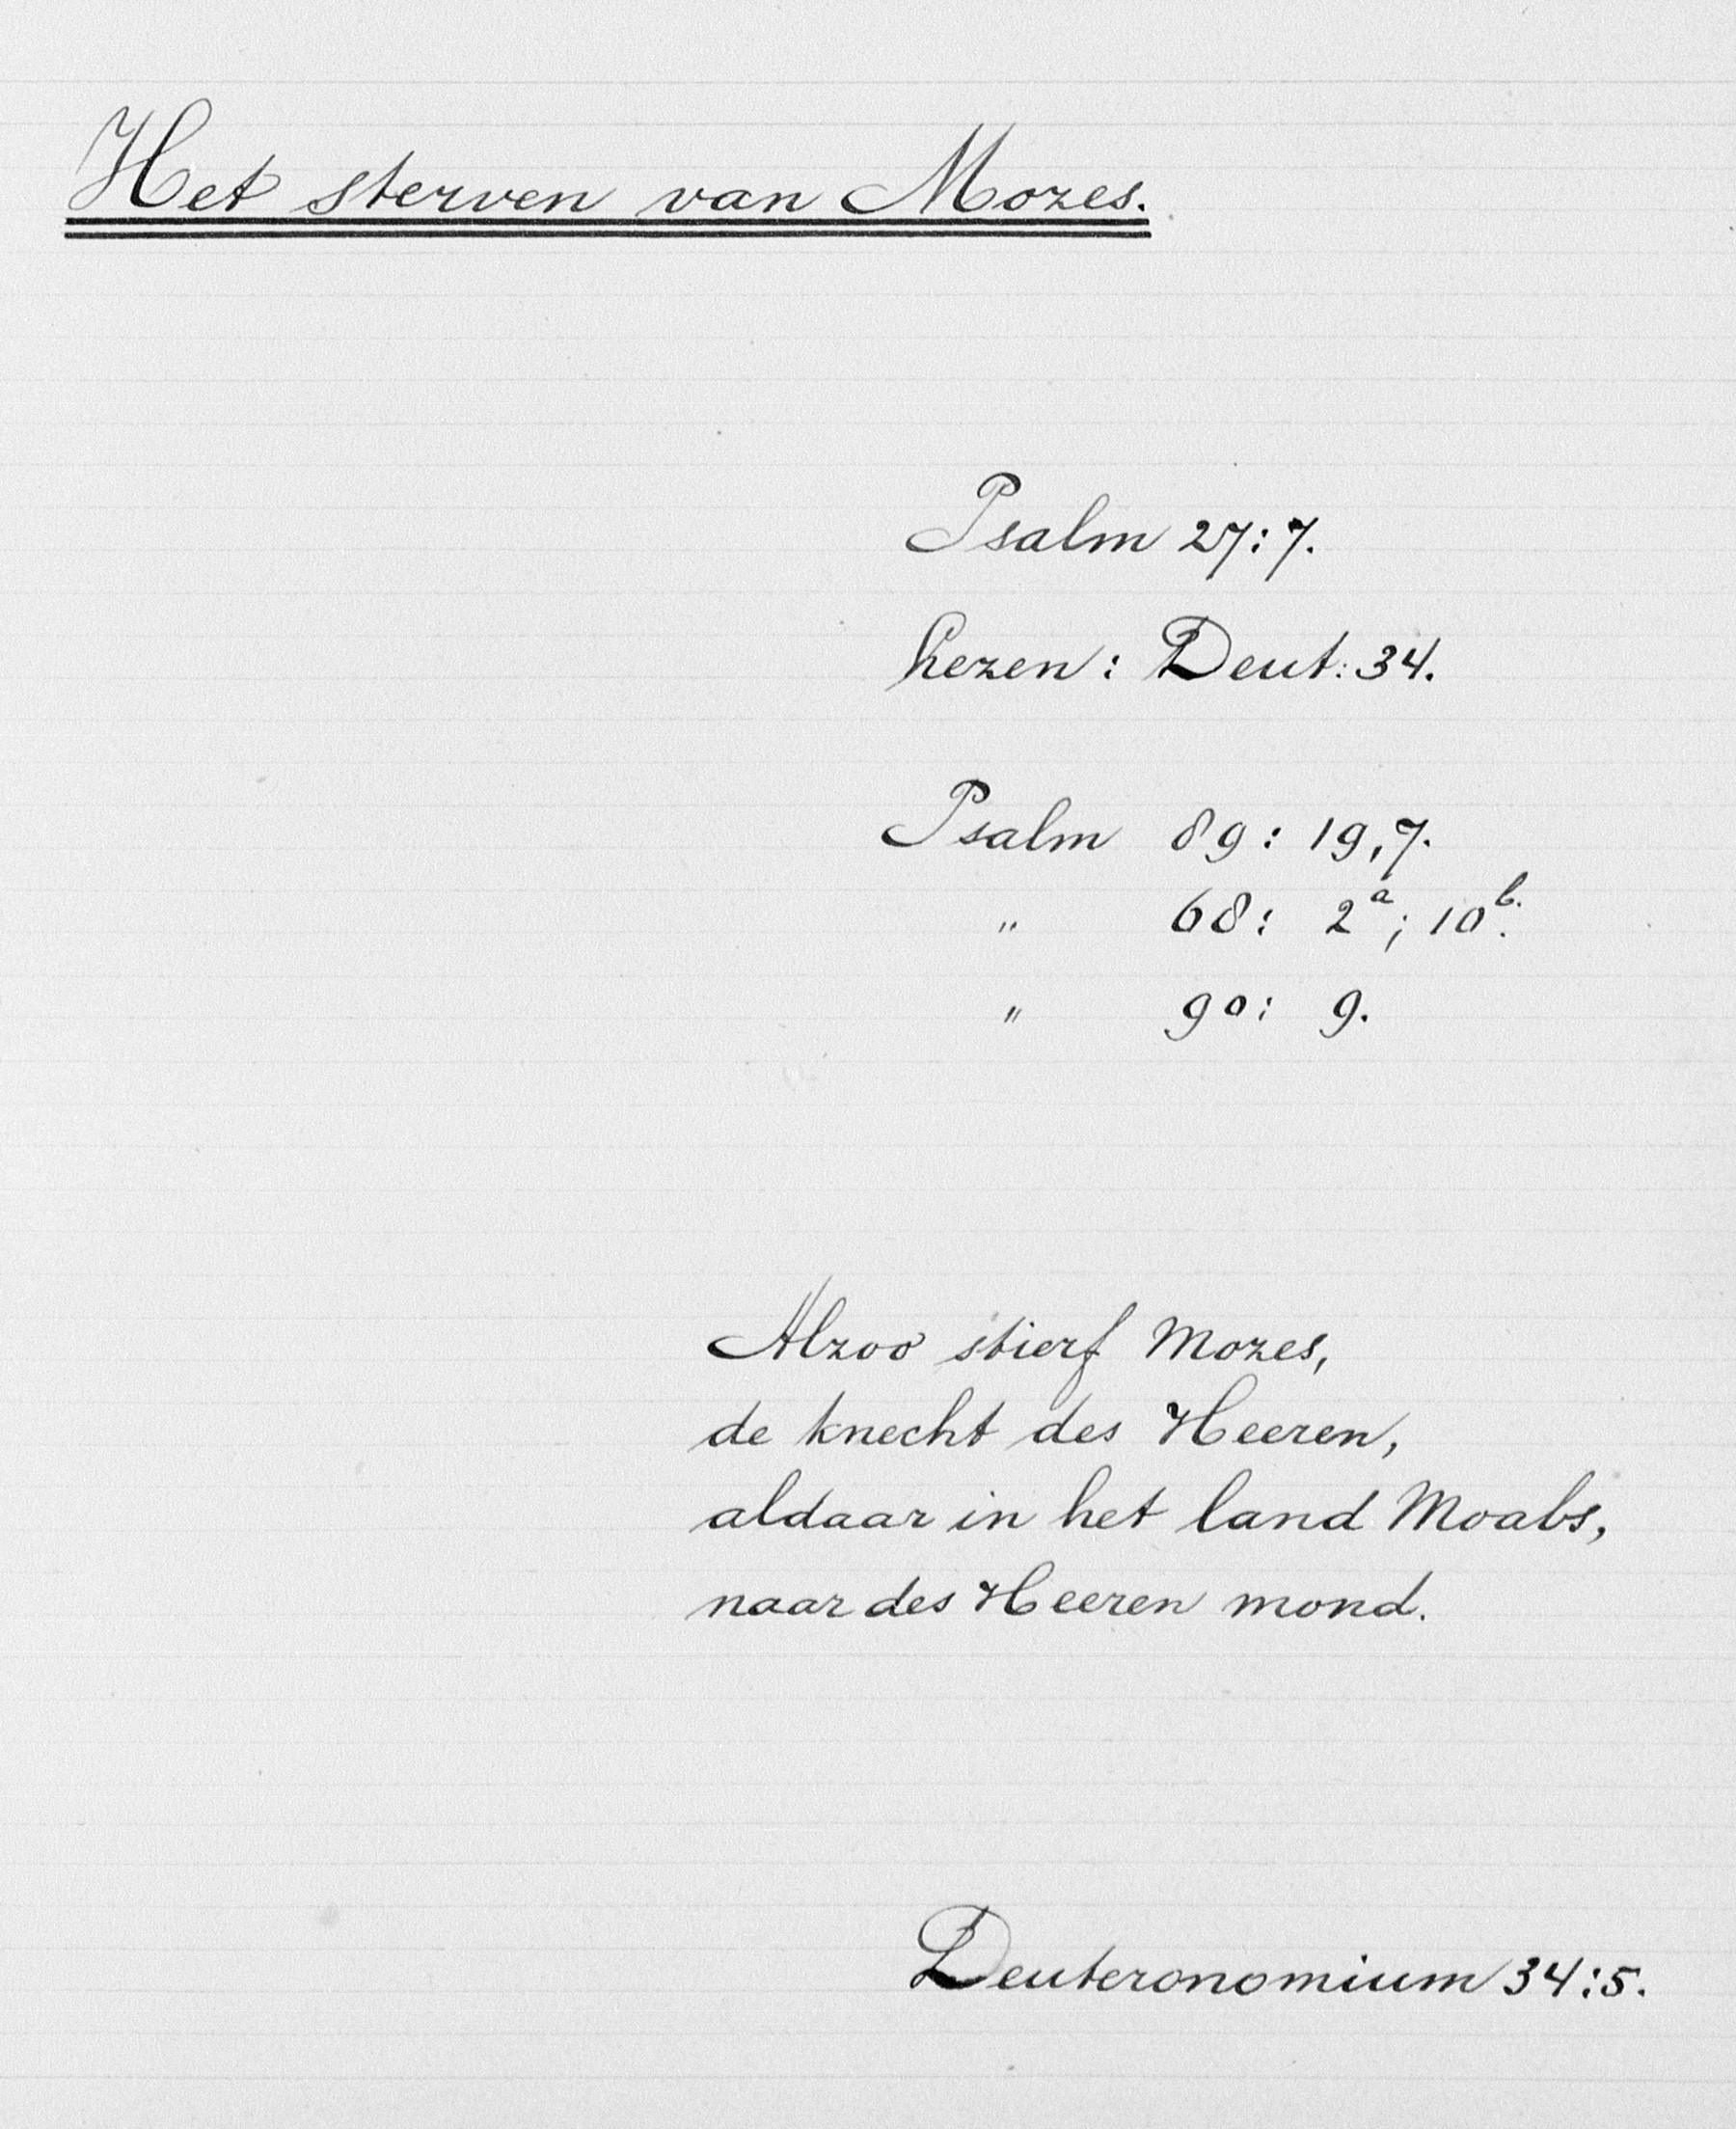 Het sterven van Mozes.
Psalm 27:7.
Lezen: Deut: 34.
Psalm 89: 19,7.
" 68: 2a; 10b.
" 90: 9.
Alzoo stierf Mozes,
de knecht des Heeren,
aldaar in het land Moabs,
naar des Heeren mond.
Deuteronomium 34:5.